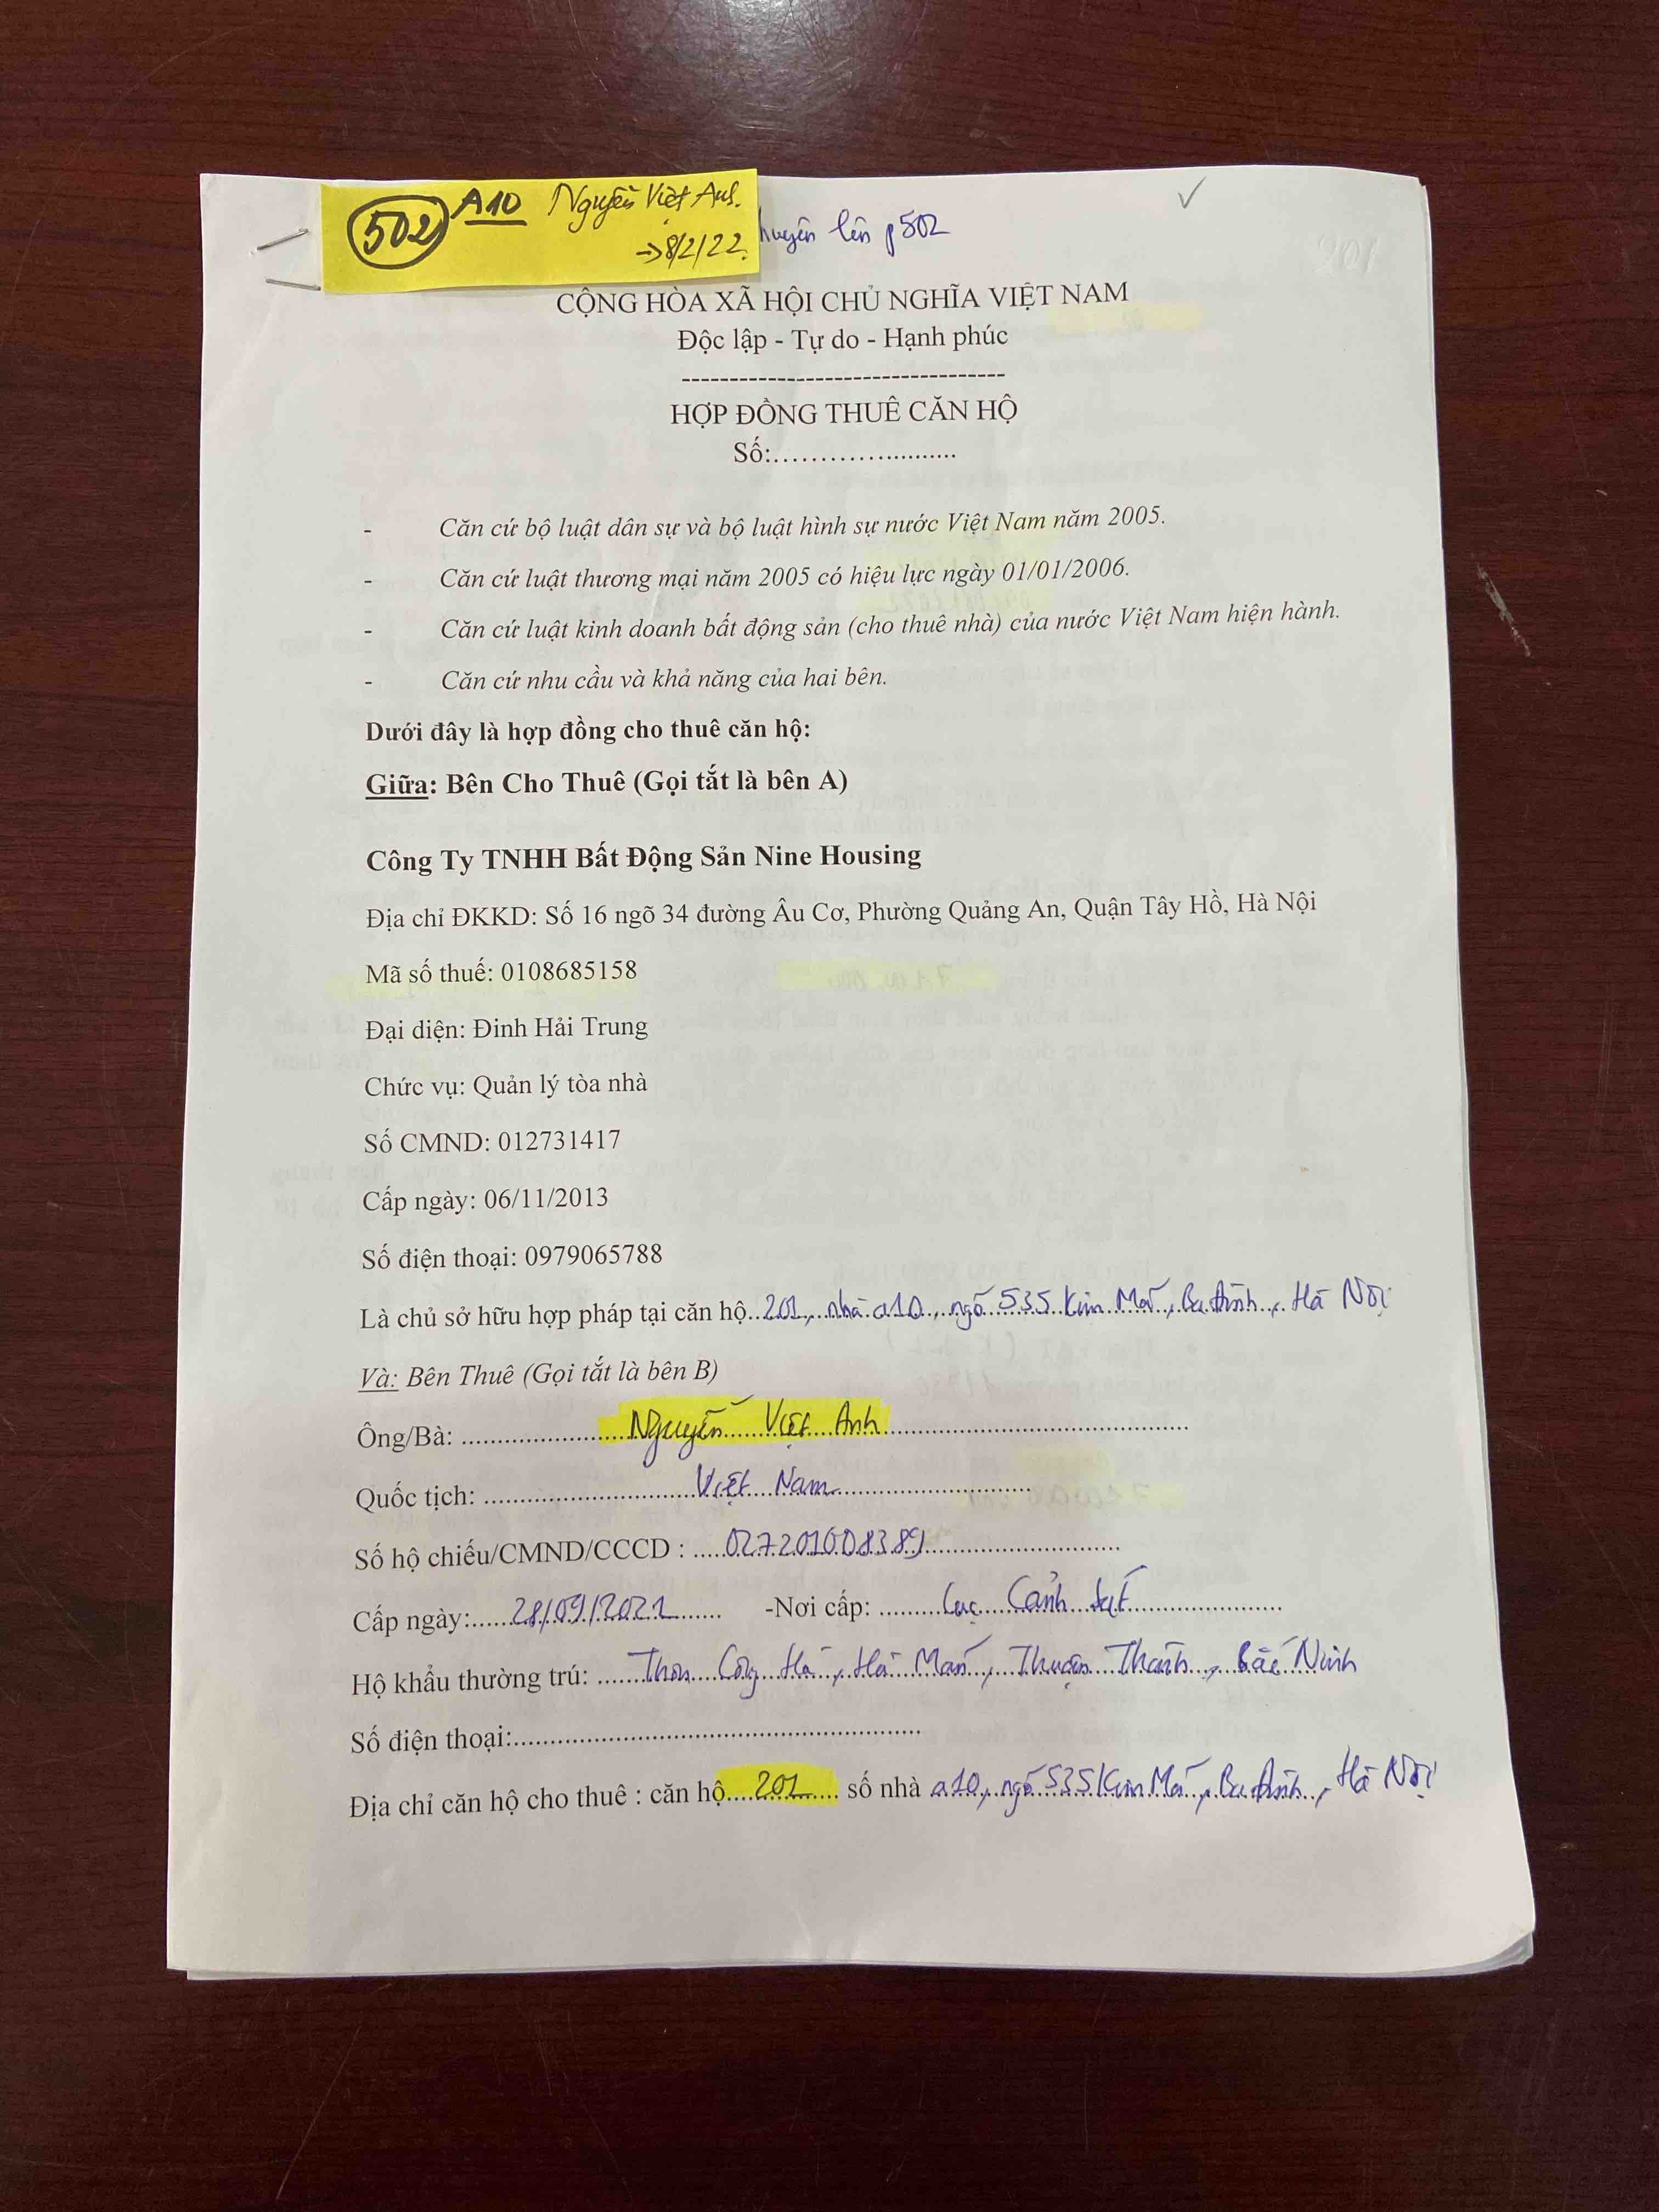 502 A10 Nguyễn Việt Anh.
→8/2/22.
huyên lên p502
CỘNG HÒA XÃ HỘI CHỦ NGHĨA VIỆT NAM
Độc lập - Tự do - Hạnh phúc
----------------------------------
HỢP ĐỒNG THUÊ CĂN HỘ
Số:.......................
- Căn cứ bộ luật dân sự và bộ luật hình sự nước Việt Nam năm 2005.
- Căn cứ luật thương mại năm 2005 có hiệu lực ngày 01/01/2006.
- Căn cứ luật kinh doanh bất động sản (cho thuê nhà) của nước Việt Nam hiện hành.
- Căn cứ nhu cầu và khả năng của hai bên.
Dưới đây là hợp đồng cho thuê căn hộ:
Giữa: Bên Cho Thuê (Gọi tắt là bên A)
Công Ty TNHH Bất Động Sản Nine Housing
Địa chỉ ĐKKD: Số 16 ngõ 34 đường Âu Cơ, Phường Quảng An, Quận Tây Hồ, Hà Nội
Mã số thuế: 0108685158
Đại diện: Đinh Hải Trung
Chức vụ: Quản lý tòa nhà
Số CMND: 012731417
Cấp ngày: 06/11/2013
Số điện thoại: 0979065788
Là chủ sở hữu hợp pháp tại căn hộ 201, nhà a10, ngõ 535 Kim Mã, Ba Đình, Hà Nội
Và: Bên Thuê (Gọi tắt là bên B)
Ông/Bà: Nguyễn Việt Anh
Quốc tịch: Việt Nam
Số hộ chiếu/CMND/CCCD : 027201008389
Cấp ngày: 28/09/2021 -Nơi cấp: Cục Cảnh sát
Hộ khẩu thường trú: Thôn Công Hà, Hà Mãn, Thuận Thành, Bắc Ninh
Số điện thoại:
Địa chỉ căn hộ cho thuê : căn hộ 201 số nhà a10, ngõ 535 Kim Mã, Ba Đình, Hà Nội